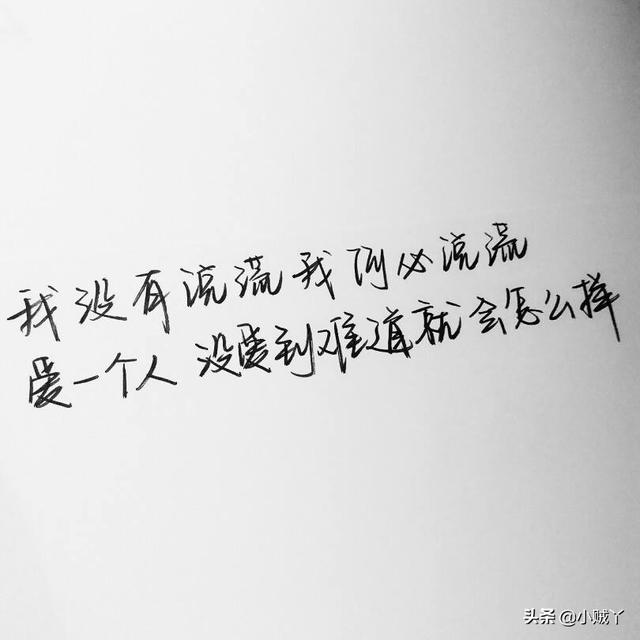 我没有说谎我何必说谎
爱一个人 没爱到难道就会怎么样
头条 @小贼丫